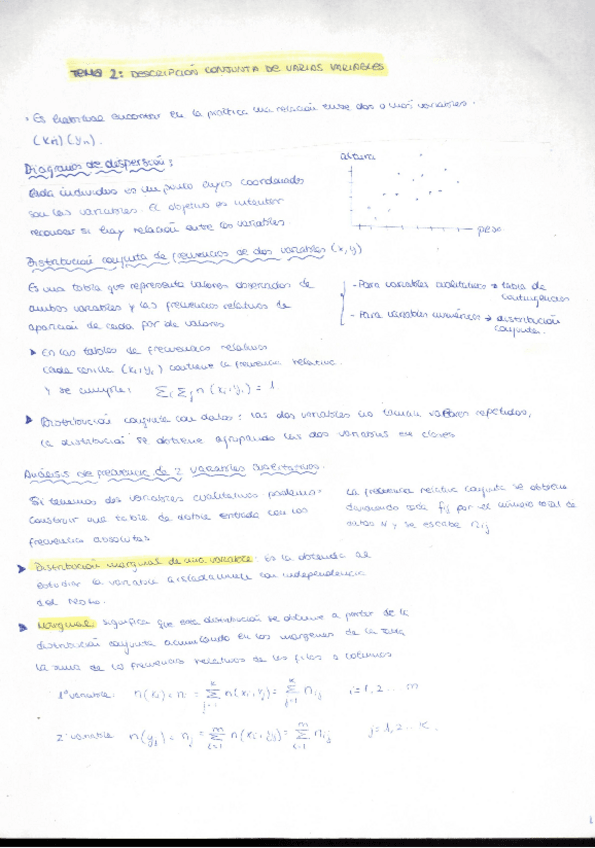 TEMA 2: DESCRIPCIÓN CONJUNTA DE VARIAS VARIABLES
· Es habitual encontrar en la práctica una relación entre dos o más variables.
(Xn) (Yn).
Diagramas de dispersión:
Cada individuo es un punto cuyas coordenadas
son las variables. El objetivo es intentar
reconocer si hay relación entre las variables.
altura
peso
Distribución conjunta de frecuencias de dos variables (x, y)
Es una tabla que representa valores observados de
ambas variables y las frecuencias relativas de
aparición de cada par de valores
- Para variables cualitativas → tabla de
contingencias
- Para variables numéricas → distribución
conjunta.
En las tablas de frecuencias relativas
cada celda (xi, yj) contiene la frecuencia relativa.
Y se cumple: Σi Σj n (xi, yj) = 1
Distribución conjunta con datos: las dos variables no toman valores repetidos,
la distribución se obtiene agrupando las dos variables en clases
Análisis de frecuencia de 2 variables
Si tenemos dos variables cualitativas podemos
construir una tabla de doble entrada con las
frecuencias absolutas
La frecuencia relativa conjunta se obtiene
dividiendo cada fij por el número total de
datos N y se escribe nij
Distribución marginal de una variable: Es la obtenida al
estudiar la variable aisladamente con independencia
del resto.
Marginal: significa que esa distribución se obtiene a partir de la
distribución conjunta acumulando en los márgenes de la tabla
la suma de las frecuencias relativas de las filas o columnas
1ª variable: n(xi) = ni = Σ n(xi, yj) = Σ nij i = 1, 2 ... m
2ª variable n(yj) = nj = Σ n(xi, yj) = Σ nij j = 1, 2 ... K.